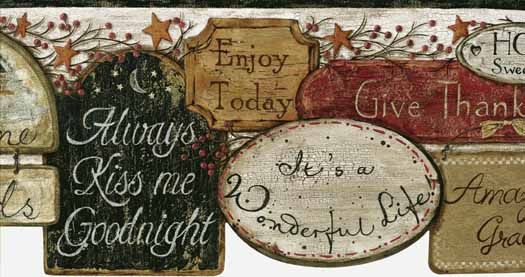 Always
Kiss me
Goodnight
Enjoy
Today
It's a
Wonderful Life!
Give Thank
HO
Swee
Ama
Gra
me
ls